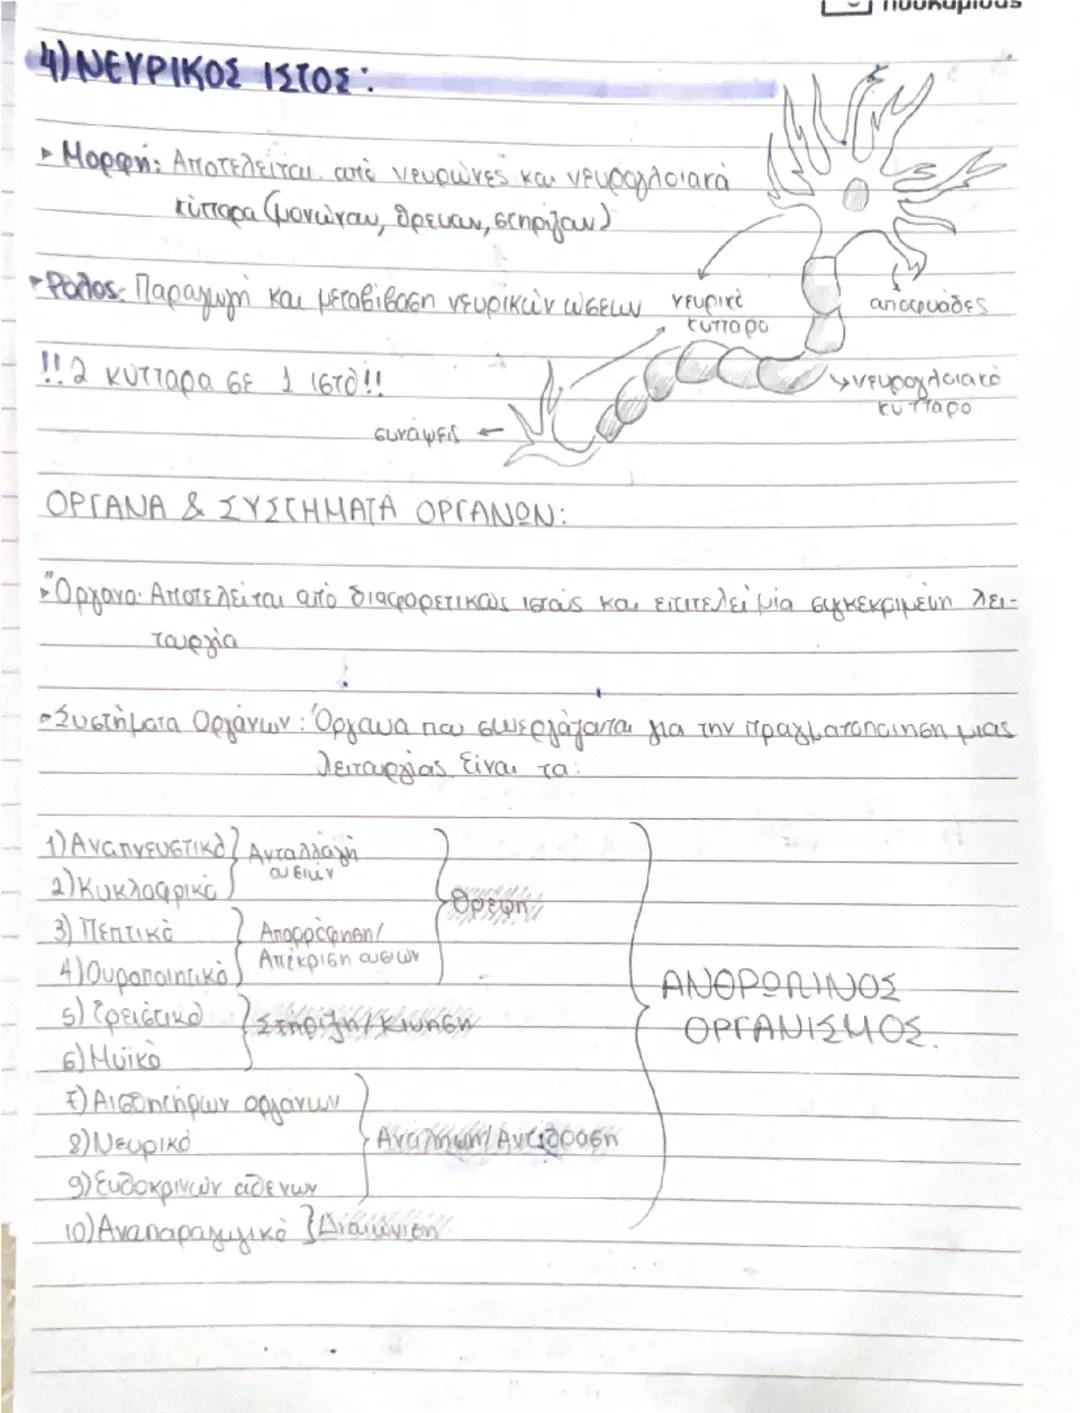 4) ΝΕΥΡΙΚΟΣ ΙΣΤΟΣ:
Μορφή: Αποτελείται από νευρώνες και νευρογλοιακά
κύτταρα (μονώνουν, θρέυουν, στηρίζουν)
Ρόλος: Παραγωγή και μεταβίβαση νευρικών ώσεων
νευρικό
κύτταρο
αποφυάδες
!! 2 κύτταρα σε 1 ιστό!!
νευρογλοιακό
κύτταρο
συνάψεις
ΟΡΓΑΝΑ & ΣΥΣΤΗΜΑΤΑ ΟΡΓΑΝΩΝ:
Όργανο: Αποτελείται από διαφορετικούς ιστούς και επιτελεί μία συγκεκριμένη λει-
τουργία
Συστήματα Οργάνων: Όργανα που συνεργάζονται για την πραγματοποίηση μιας
λειτουργίας. Είναι τα:
1) Αναπνευστικό
Ανταλλαγή
ουσιών
2) Κυκλοφρικό
Θρέψη
3) Πεπτικό
Απορρόφηση/
Απέκριση ουσιών
4) Ουροποιητικό
ΑΝΘΡΩΠΙΝΟΣ
ΟΡΓΑΝΙΣΜΟΣ.
5) Ερειστικό
Στήριξη/Κίνηση
6) Μυϊκό
7) Αισθητήριων οργάνων
8) Νευρικό
Αντίληψη/Αντίδραση
9) Ενδοκρινών αδένων
10) Αναπαραγωγικό
Διαιώνιση